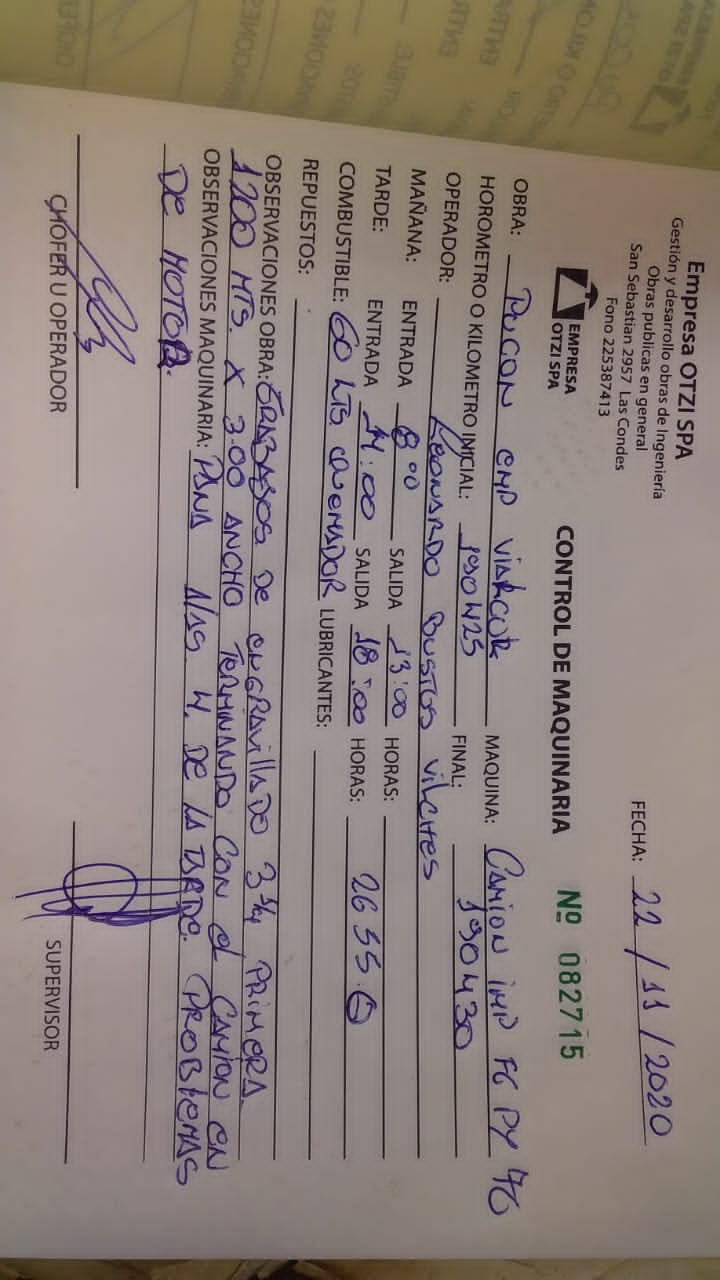 Empresa OTZI SPA
Gestión y desarrollo obras de Ingeniería
Obras publicas en general
San Sebastian 2957 Las Condes
Fono 225387413
FECHA: 22/11/2020
EMPRESA
OTZI SPA
CONTROL DE MAQUINARIA Nº 082715
OBRA: PUCON CMP VIARCOR MAQUINA: CAMION IMP FG PY 46
HOROMETRO O KILOMETRO INICIAL: 190425 FINAL: 190430
OPERADOR: LEONARDO BUSTOS VILCHES
MAÑANA: ENTRADA 8:00 SALIDA 13:00 HORAS:
TARDE: ENTRADA 14:00 SALIDA 18:00 HORAS: 2655.6
COMBUSTIBLE: 60 LTS. QUEMADOR LUBRICANTES:
REPUESTOS:
OBSERVACIONES OBRA: TRABAJOS DE ENGRAVILLADO 3/4 PRIMERA.
1200 MTS. X 3.00 ANCHO TERMINANDO CON EL CAMION EN
OBSERVACIONES MAQUINARIA: PANA A LAS 4. DE LA TARDE. PROBLEMAS
DE MOTOR.
CHOFER U OPERADOR
SUPERVISOR